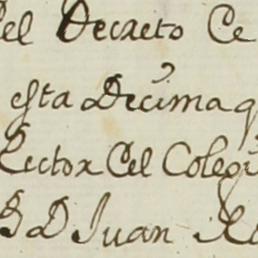 el Decreto Ce
esta Decima q
Rector Cel Colegi
D Juan